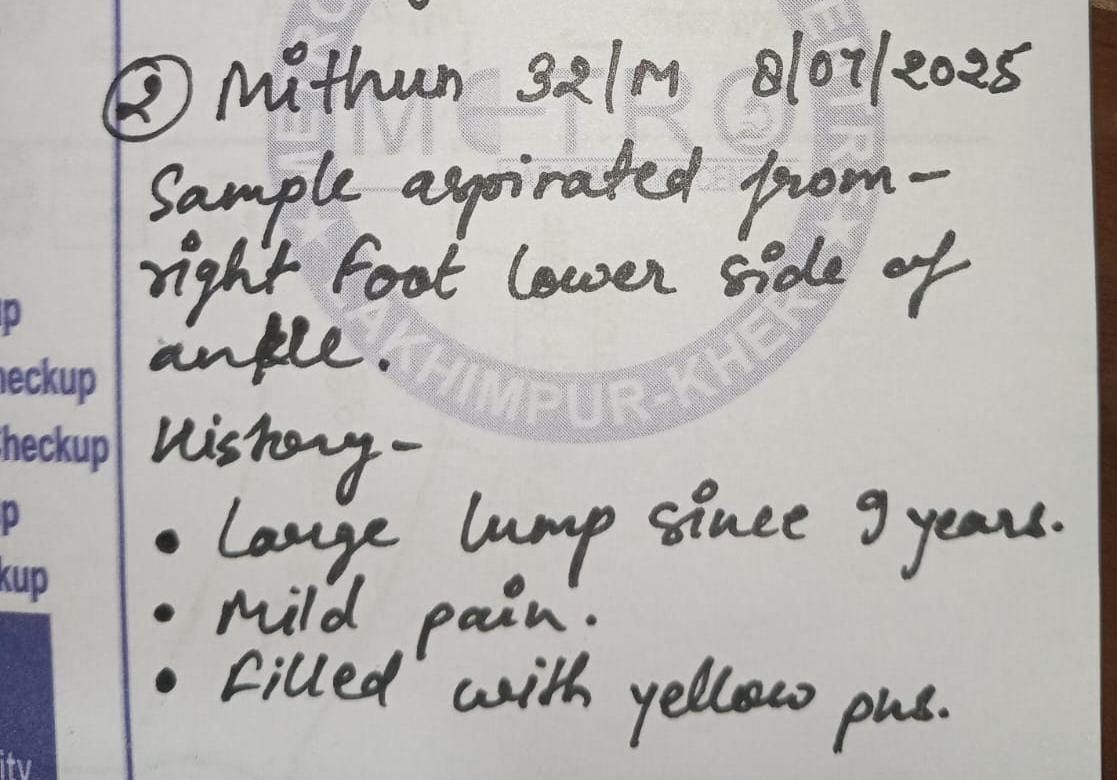 ② Mithun 32/M 8/07/2025
Sample aspirated from-
right foot lower side of
ankle.
History-
• Large lump since 9 years.
• Mild pain.
• filled with yellow pus.
METRO
LAKHIMPUR-KHERI
p
heckup
heckup
p
kup
ity